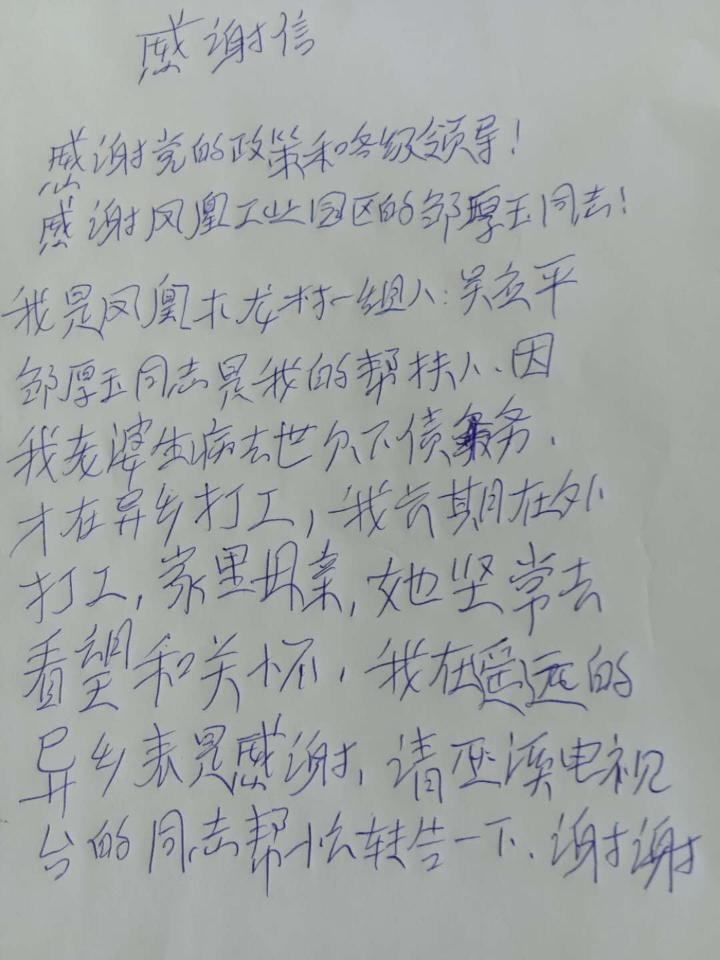 感谢信
感谢党的政策和各级领导!
感谢凤凰工业园区的邹厚玉同志!
我是凤凰木龙村一组人:吴立平
邹厚玉同志是我的帮扶人、因
我老婆生病去世欠下债务、
才在异乡打工,我长期在外
打工,家里母亲,她坚常去
看望和关怀、我在遥远的
异乡表是感谢,请巫溪电视
台的同志帮忙转告一下、谢谢